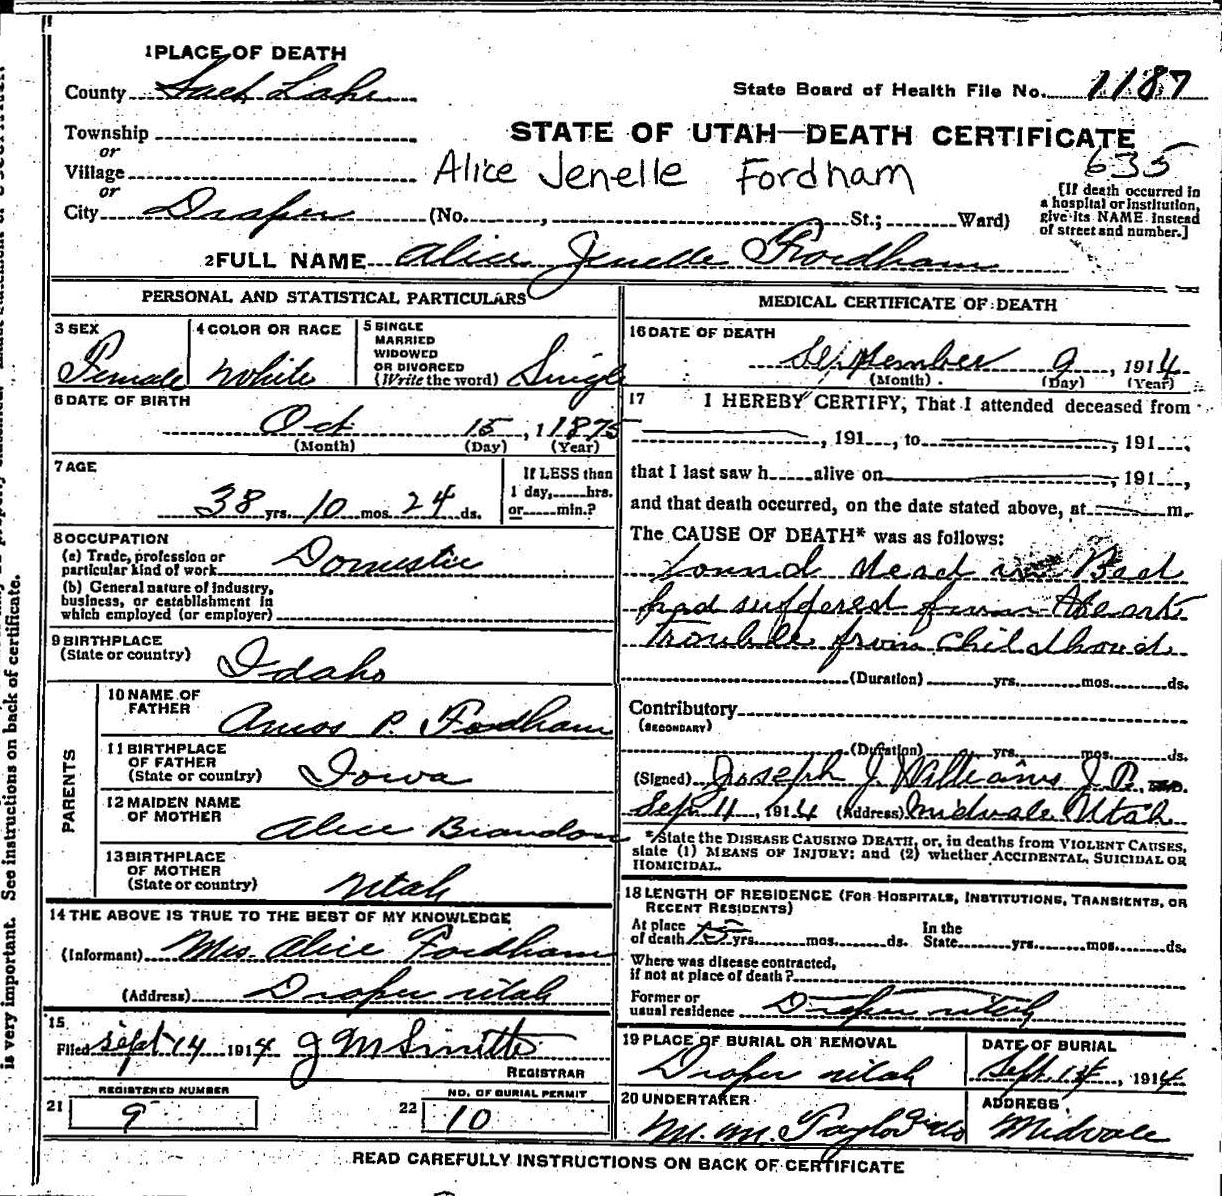 1 PLACE OF DEATH
County Salt Lake
State Board of Health File No. 1187
Township
or
Village
or
City Draper (No. , St.; Ward)
STATE OF UTAH—DEATH CERTIFICATE
Alice Jenelle Fordham
635
[If death occurred in
a hospital or institution,
give its NAME instead
of street and number.]
2 FULL NAME Alice Jenelle Fordham
PERSONAL AND STATISTICAL PARTICULARS
3 SEX
Female
4 COLOR OR RACE
White
5 SINGLE
MARRIED
WIDOWED
OR DIVORCED
(Write the word) Single
6 DATE OF BIRTH
Oct 15, 1 1875
(Month) (Day) (Year)
7 AGE
38 yrs. 10 mos. 24 ds.
If LESS than
1 day, hrs.
or min.?
8 OCCUPATION
(a) Trade, profession or
particular kind of work Domestic
(b) General nature of industry,
business, or establishment in
which employed (or employer)
9 BIRTHPLACE
(State or country) Idaho
PARENTS
10 NAME OF
FATHER Amos P. Fordham
11 BIRTHPLACE
OF FATHER
(State or country) Iowa
12 MAIDEN NAME
OF MOTHER Alice Brandon
13 BIRTHPLACE
OF MOTHER
(State or country) Utah
14 THE ABOVE IS TRUE TO THE BEST OF MY KNOWLEDGE
(Informant) Mrs. Alice Fordham
(Address) Draper Utah
15
Filed Sept 14 1914 J M Smith
REGISTRAR
REGISTERED NUMBER
21 9
NO. OF BURIAL PERMIT
22 10
MEDICAL CERTIFICATE OF DEATH
16 DATE OF DEATH
September 9, 1914
(Month) (Day) (Year)
17 I HEREBY CERTIFY, That I attended deceased from
, 191 , to , 191 ,
that I last saw h alive on , 191 ,
and that death occurred, on the date stated above, at m.
The CAUSE OF DEATH* was as follows:
Found dead in Bed
had suffered from Heart
Trouble from Childhood
(Duration) yrs. mos. ds.
Contributory
(SECONDARY)
(Duration) yrs. mos. ds.
(Signed) Joseph J. Williams J. P.
Sept 11, 1914 (Address) Midvale Utah
*State the DISEASE CAUSING DEATH, or, in deaths from VIOLENT CAUSES,
state (1) MEANS OF INJURY; and (2) whether ACCIDENTAL, SUICIDAL OR
HOMICIDAL.
18 LENGTH OF RESIDENCE (FOR HOSPITALS, INSTITUTIONS, TRANSIENTS, OR
RECENT RESIDENTS)
At place
of death 15 yrs. mos. ds.
In the
State yrs. mos. ds.
Where was disease contracted,
if not at place of death?
Former or
usual residence Draper Utah
19 PLACE OF BURIAL OR REMOVAL
Draper Utah
DATE OF BURIAL
Sept. 14, 1914
20 UNDERTAKER
M. M. Taylor
ADDRESS
Midvale
READ CAREFULLY INSTRUCTIONS ON BACK OF CERTIFICATE
is very important. See instructions on back of certificate.